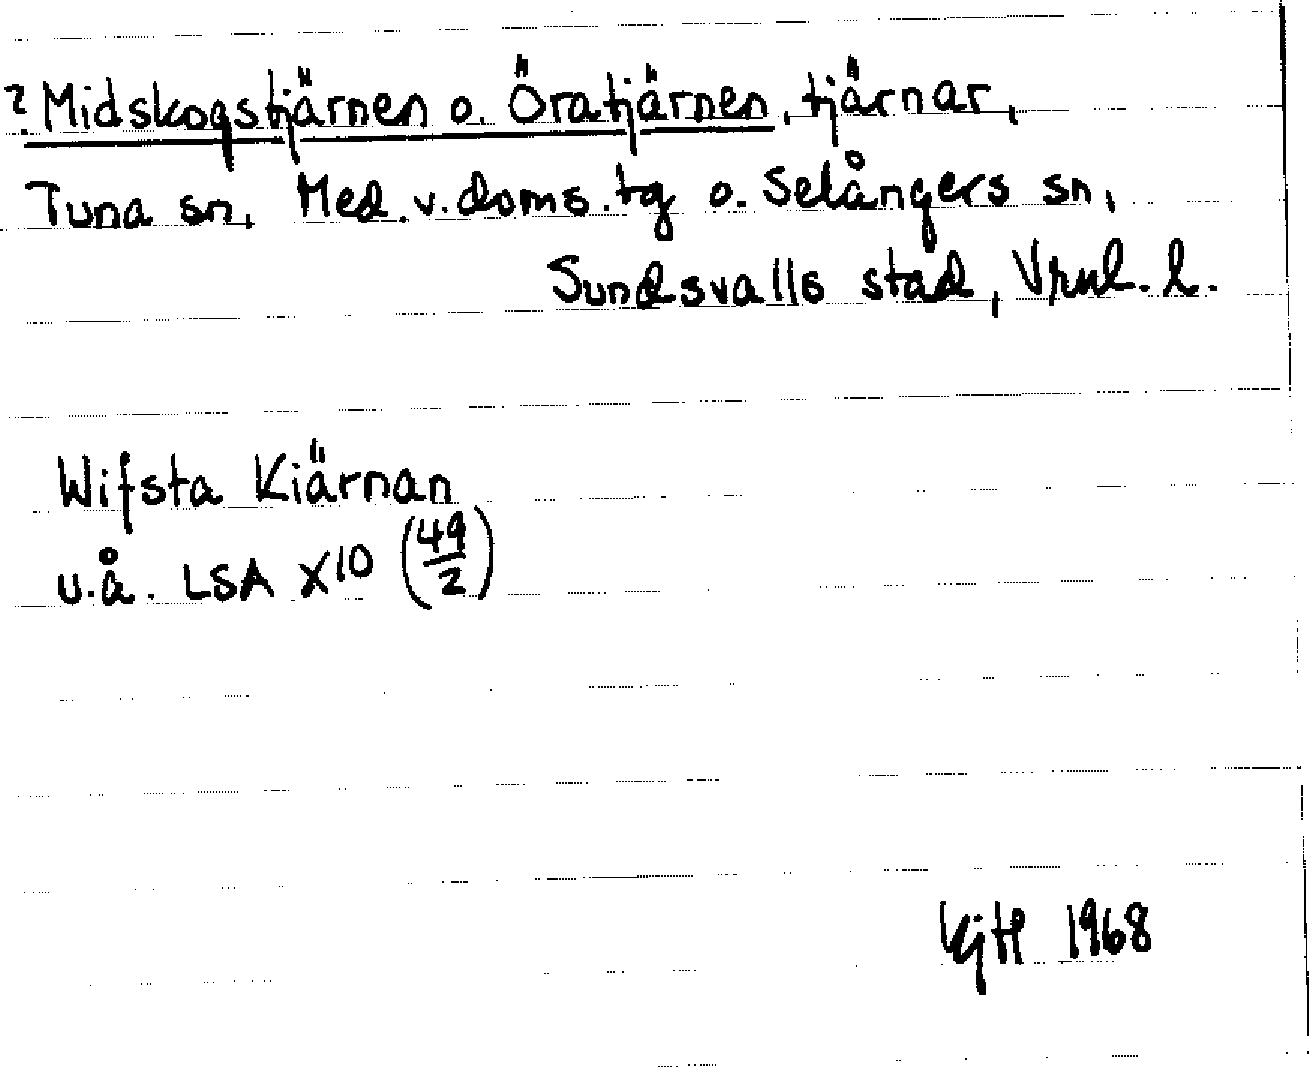 ? Midskogstjärnen o. Öratjärnen, tjärnar,
Tuna sn, Med. v. doms. tg o. Selångers sn,
Sundsvalls stad, Vrnl. l.
Wifsta Kiärnan
u.å. LSA X10 (49/2)
1968